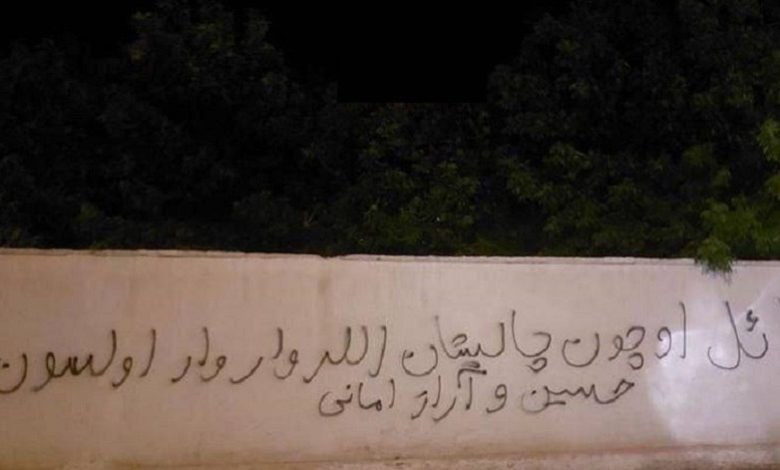 ئل اوچون چالیشان اللر وار وار اولسون
حسین و آراز امانی